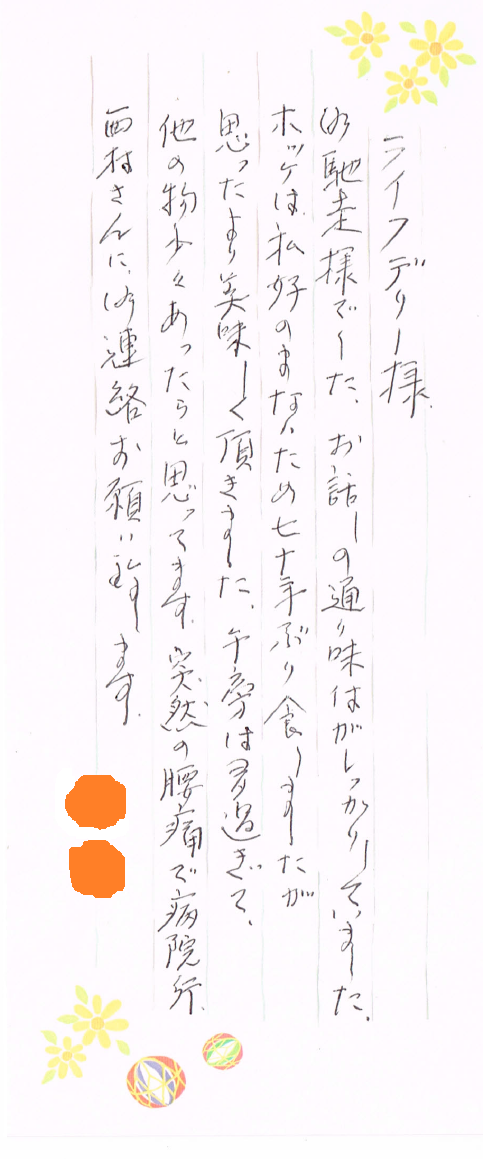 ライフデリー様
御馳走様でした、お話しの通り味はがしっかりしていました。
ホッケは、私好のまないため七十年ぶり食しましたが
思ったより美味しく頂きました、牛蒡は多過ぎて、
他の物少々あったらと思ってます。突然の腰痛で病院行、
西村さんに、御連絡お願い致します。